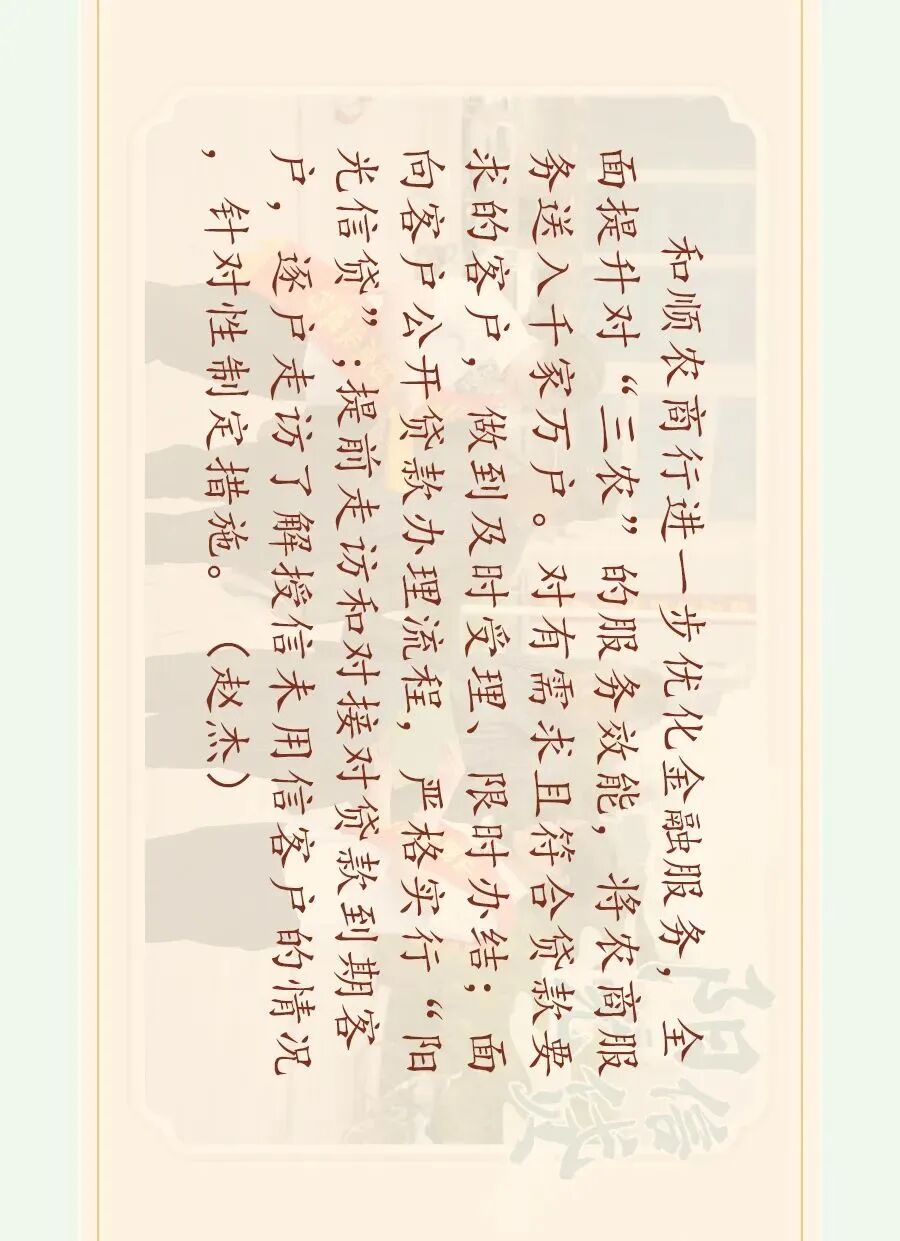 和顺农商行进一步优化金融服务，全
面提升对“三农”的服务效能，将农商服
务送入千家万户。对有需求且符合贷款要
求的客户，做到及时受理、限时办结；面
向客户公开贷款办理流程，严格实行“阳
光信贷”；提前走访和对接对贷款到期客
户，逐户走访了解授信未用信客户的情况
，针对性制定措施。（赵杰）
阳光信贷